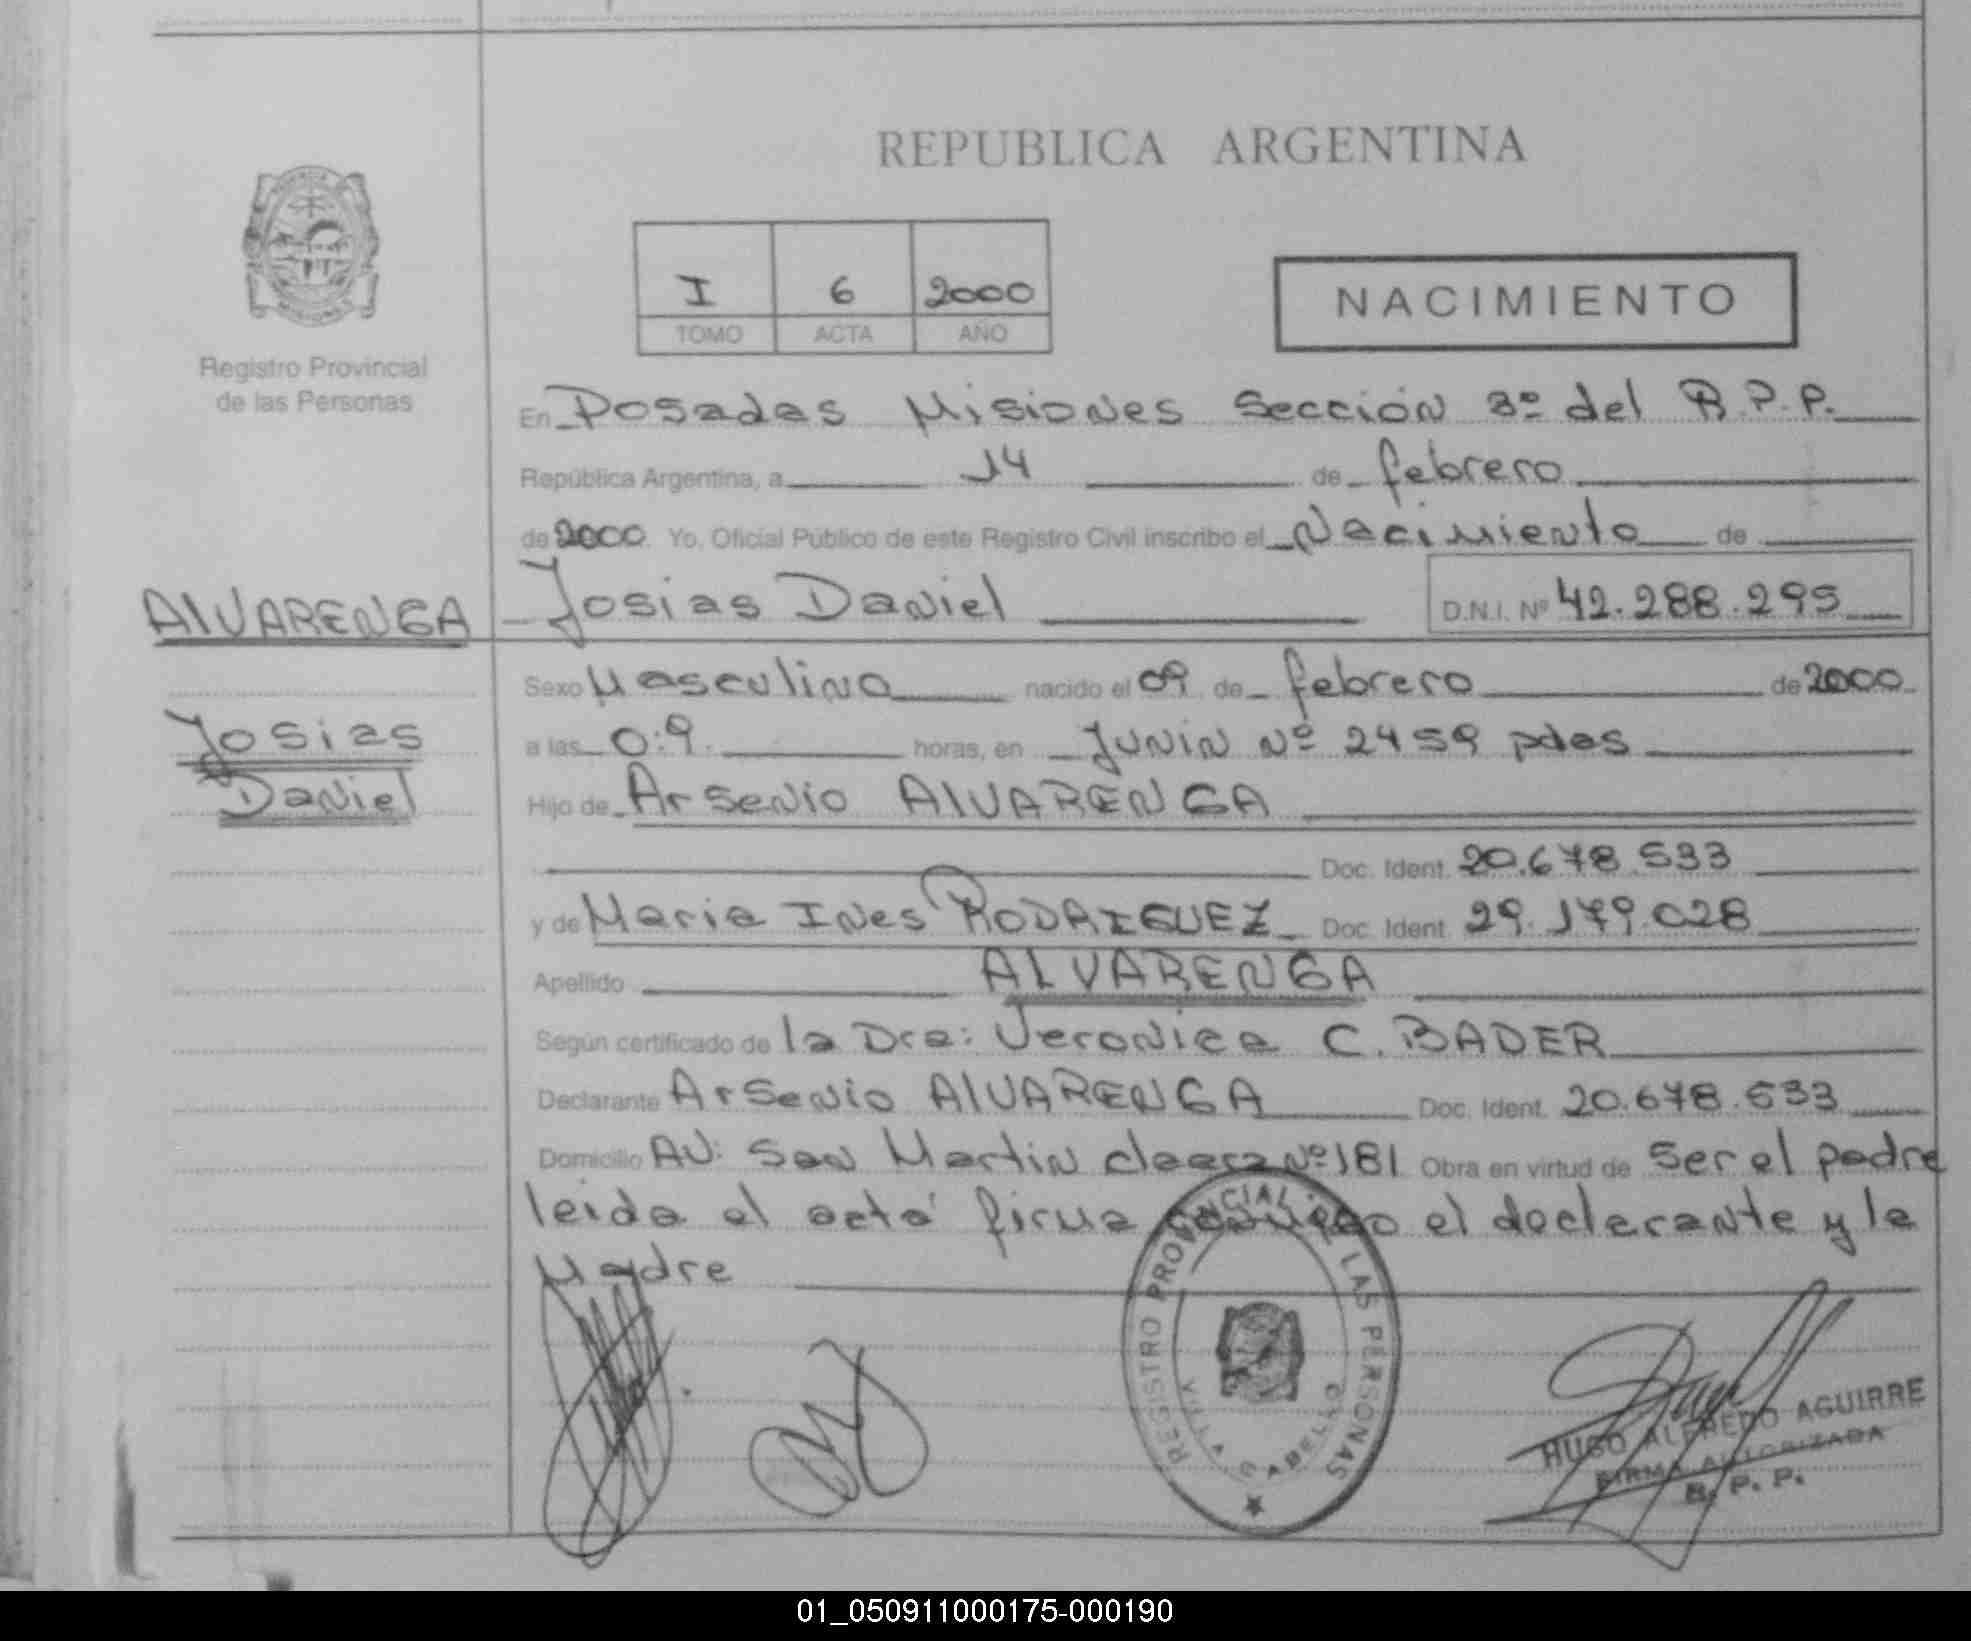 REPUBLICA ARGENTINA
I 6 2000
TOMO ACTA AÑO
NACIMIENTO
Registro Provincial
de las Personas
En Posadas Misiones Sección 3º del R.P.P.
República Argentina, a 14 de febrero
de 2000. Yo, Oficial Público de este Registro Civil inscribo el Nacimiento de
ALVARENGA Josias Daniel D.N.I. Nº 42.288.295
Sexo Masculino nacido el 09 de febrero de 2000
Josias a las 0:9. horas, en Junin Nº 2459 pdas
Daniel Hijo de Arsenio ALVARENGA
Doc. Ident. 20.678.533
y de Maria Ines RODRIGUEZ Doc. Ident. 29.179.028
Apellido ALVARENGA
Según certificado de la Dra: Veronica C. BADER
Declarante Arsenio ALVARENGA Doc. Ident. 20.678.533
Domicilio AV: San Martin chacra Nº 181 Obra en virtud de ser el padre
leida el acta firma conmigo el declarante y la
Madre
REGISTRO PROVINCIAL LAS PERSONAS
VILLA CABELLO
HUGO ALFREDO AGUIRRE
FIRMA AUTORIZADA
R.P.P.
01_050911000175-000190